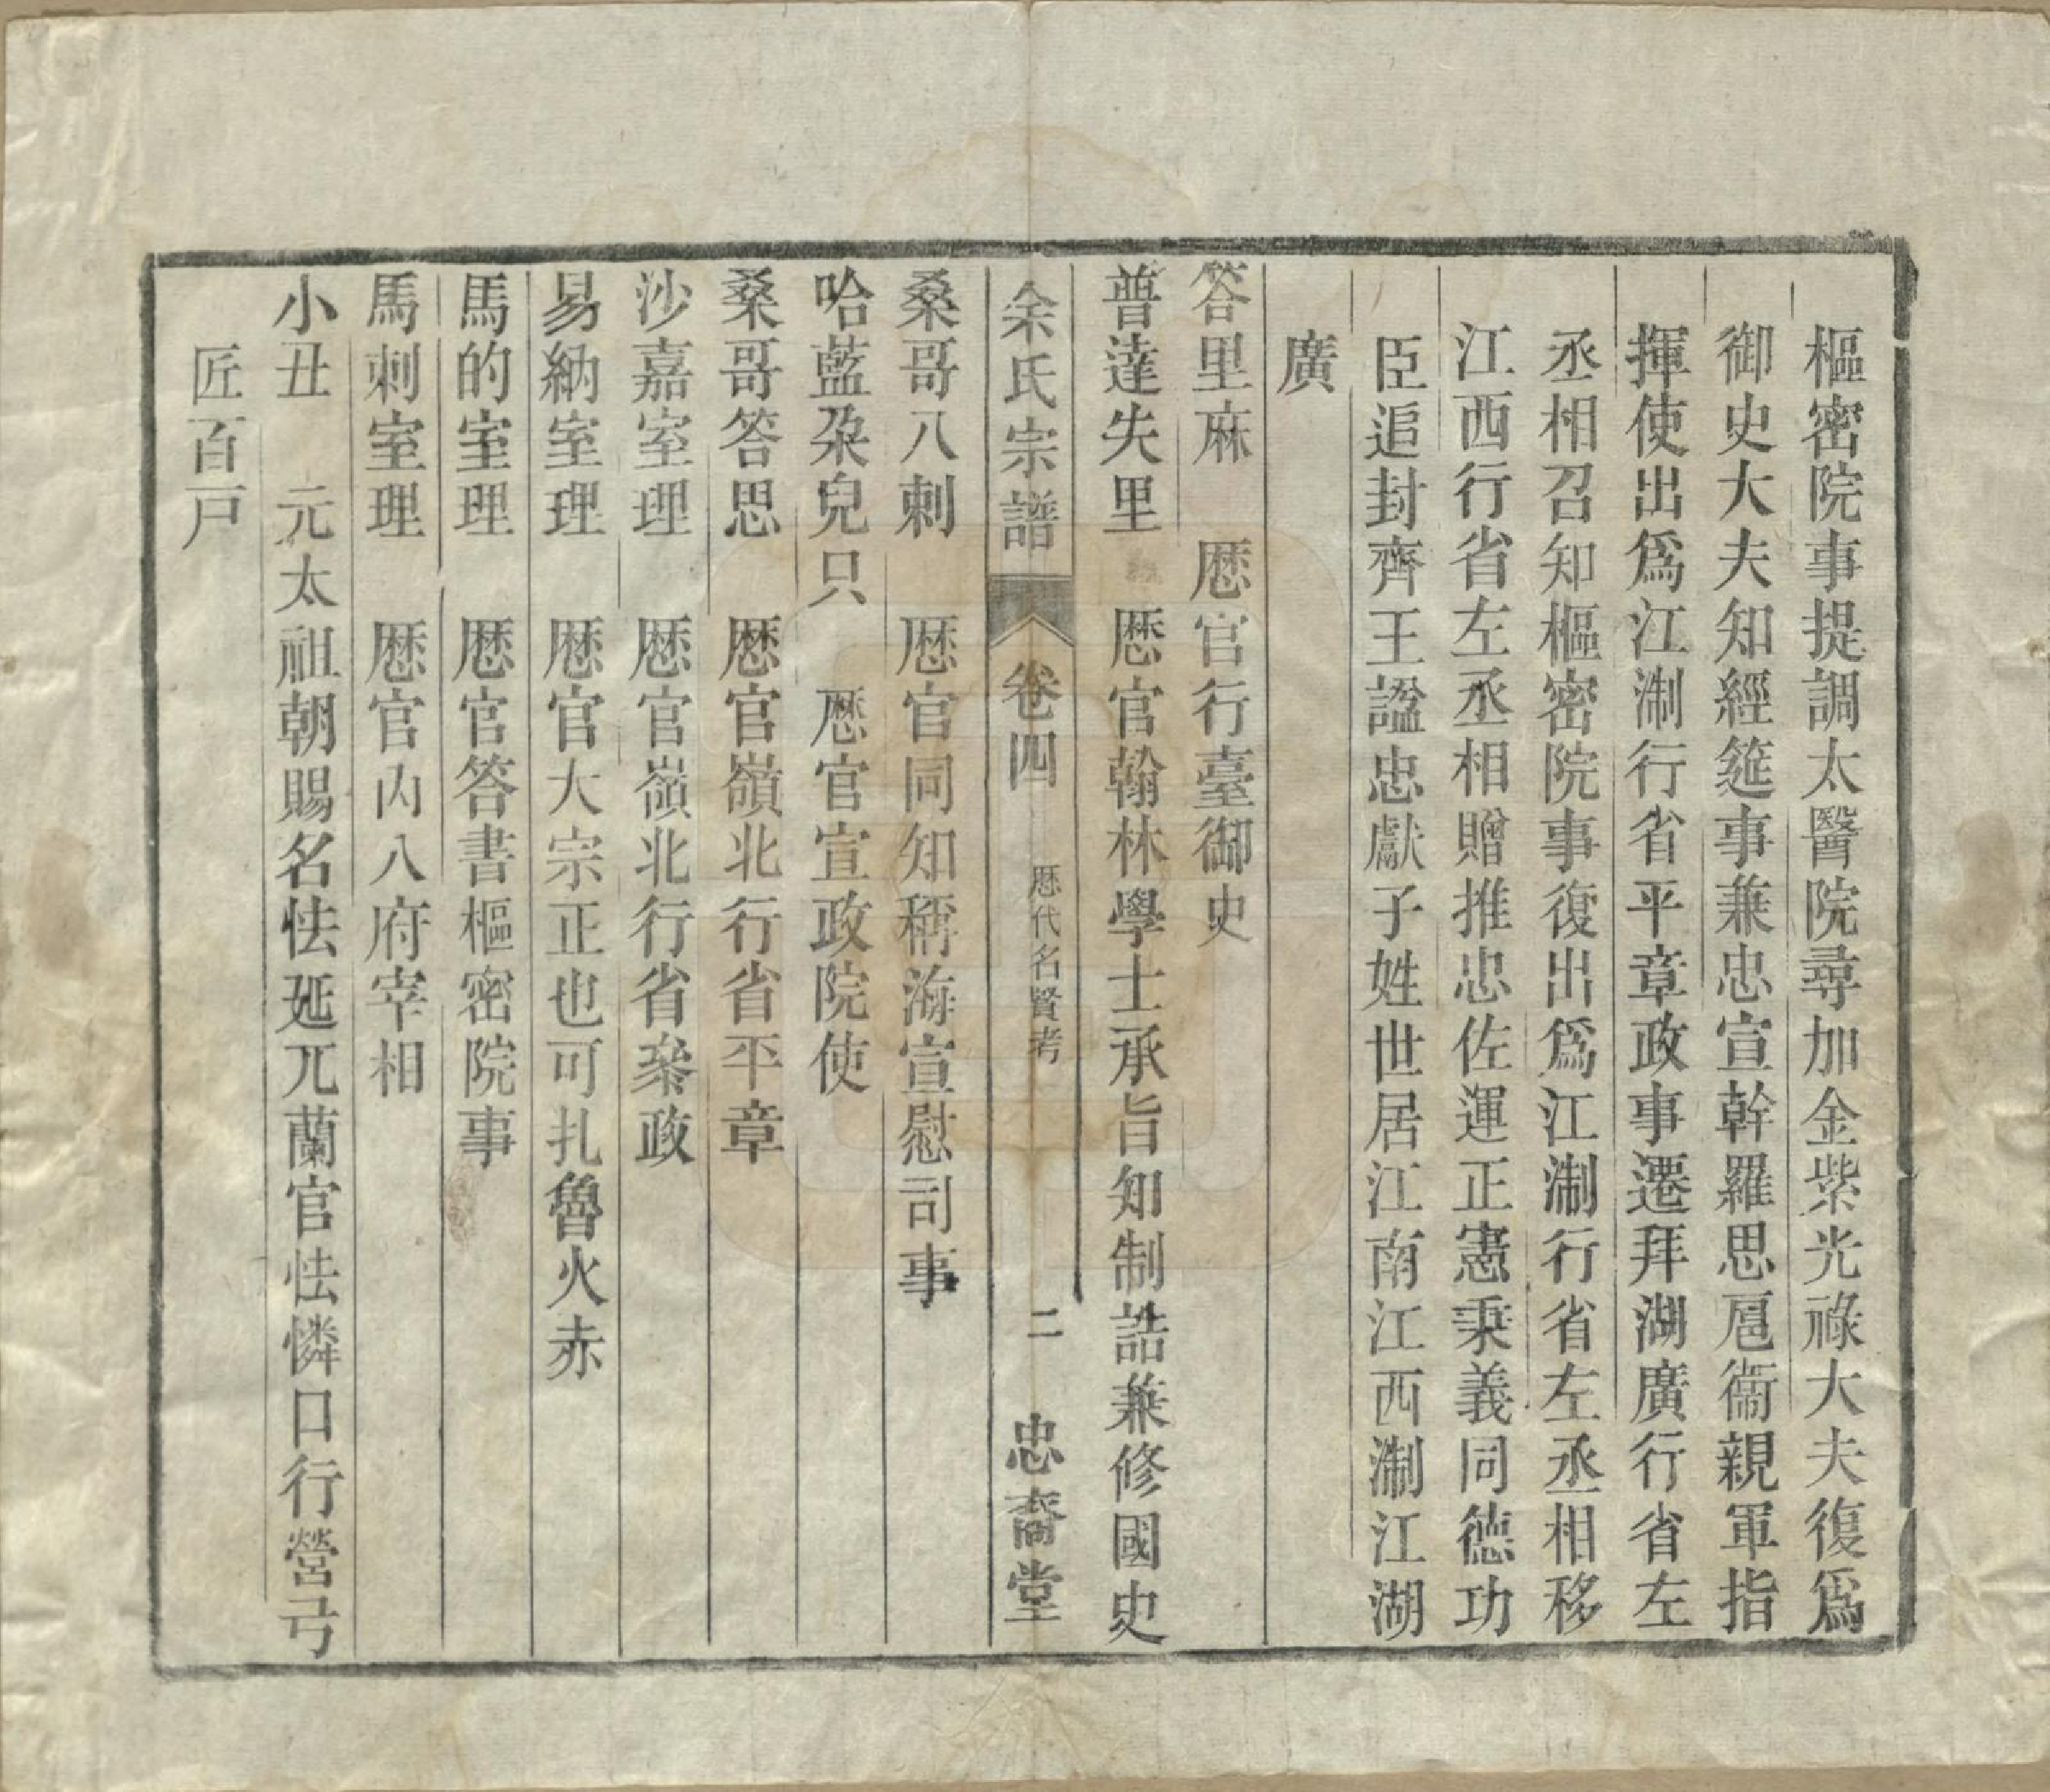 樞密院事提調太醫院尋加金紫光祿大夫復爲
御史大夫知經筵事兼忠宣斡羅思扈衞親軍指
揮使出爲江淛行省平章政事遷拜湖廣行省左
丞相召知樞密院事復出爲江淛行省左丞相移
江西行省左丞相贈推忠佐運正憲秉義同德功
臣追封齊王謚忠獻子姓世居江南江西淛江湖
廣
答里麻　厯官行臺御史
普達失里　厯官翰林學士承旨知制誥兼修國史
余氏宗譜　卷四　厯代名賢考　二　忠裔堂
桑哥八剌　厯官同知稱海宣慰司事
哈藍朶兒只　厯官宣政院使
桑哥答思　厯官嶺北行省平章
沙嘉室理　厯官嶺北行省叅政
易納室理　厯官大宗正也可扎魯火赤
馬的室理　厯官答書樞密院事
馬刺室理　厯官內八府宰相
小丑　元太祖朝賜名怯延兀蘭官怯憐口行營弓
匠百戸